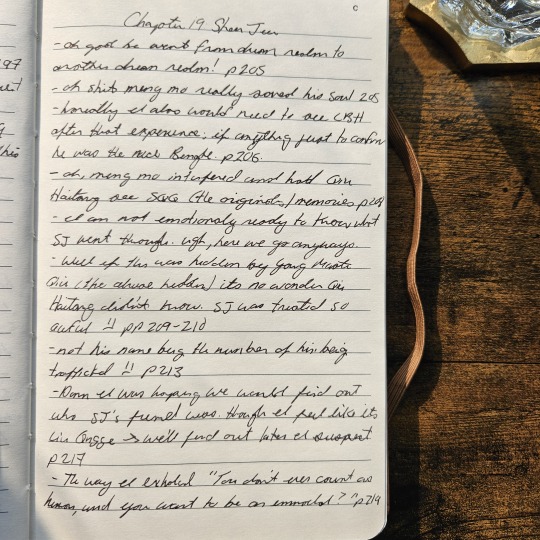 Chapter 19 Shen Jiu
-oh good he went from dream realm to
another dream realm! p205
-oh shit meng mo really saved his soul 205
-honestly I also would need to see LBH
after that experience; if anything just to confirm
he was the Bingge. p206.
-oh, meng mo interfered and had Qiu
Haitang see (the originals) memories p209
-I am not emotionally ready to know what
SJ went through. ugh, here we go anyways.
-Well if this was hidden by young Master
Qiu (the abuse hidden) its no wonder Qiu
Haitang didn't know. SJ was treated so
awful !! pp 209-210
-not his name being the number of him being
trafficked !! p213
-Damn I was hoping we would find out
who SJ's friend was. though I feel like its
Liu Qingge -> we'll find out later I suspect
p217
-The way I exhaled "You don't even count as
human, and you want to be an immortal?" p219
97